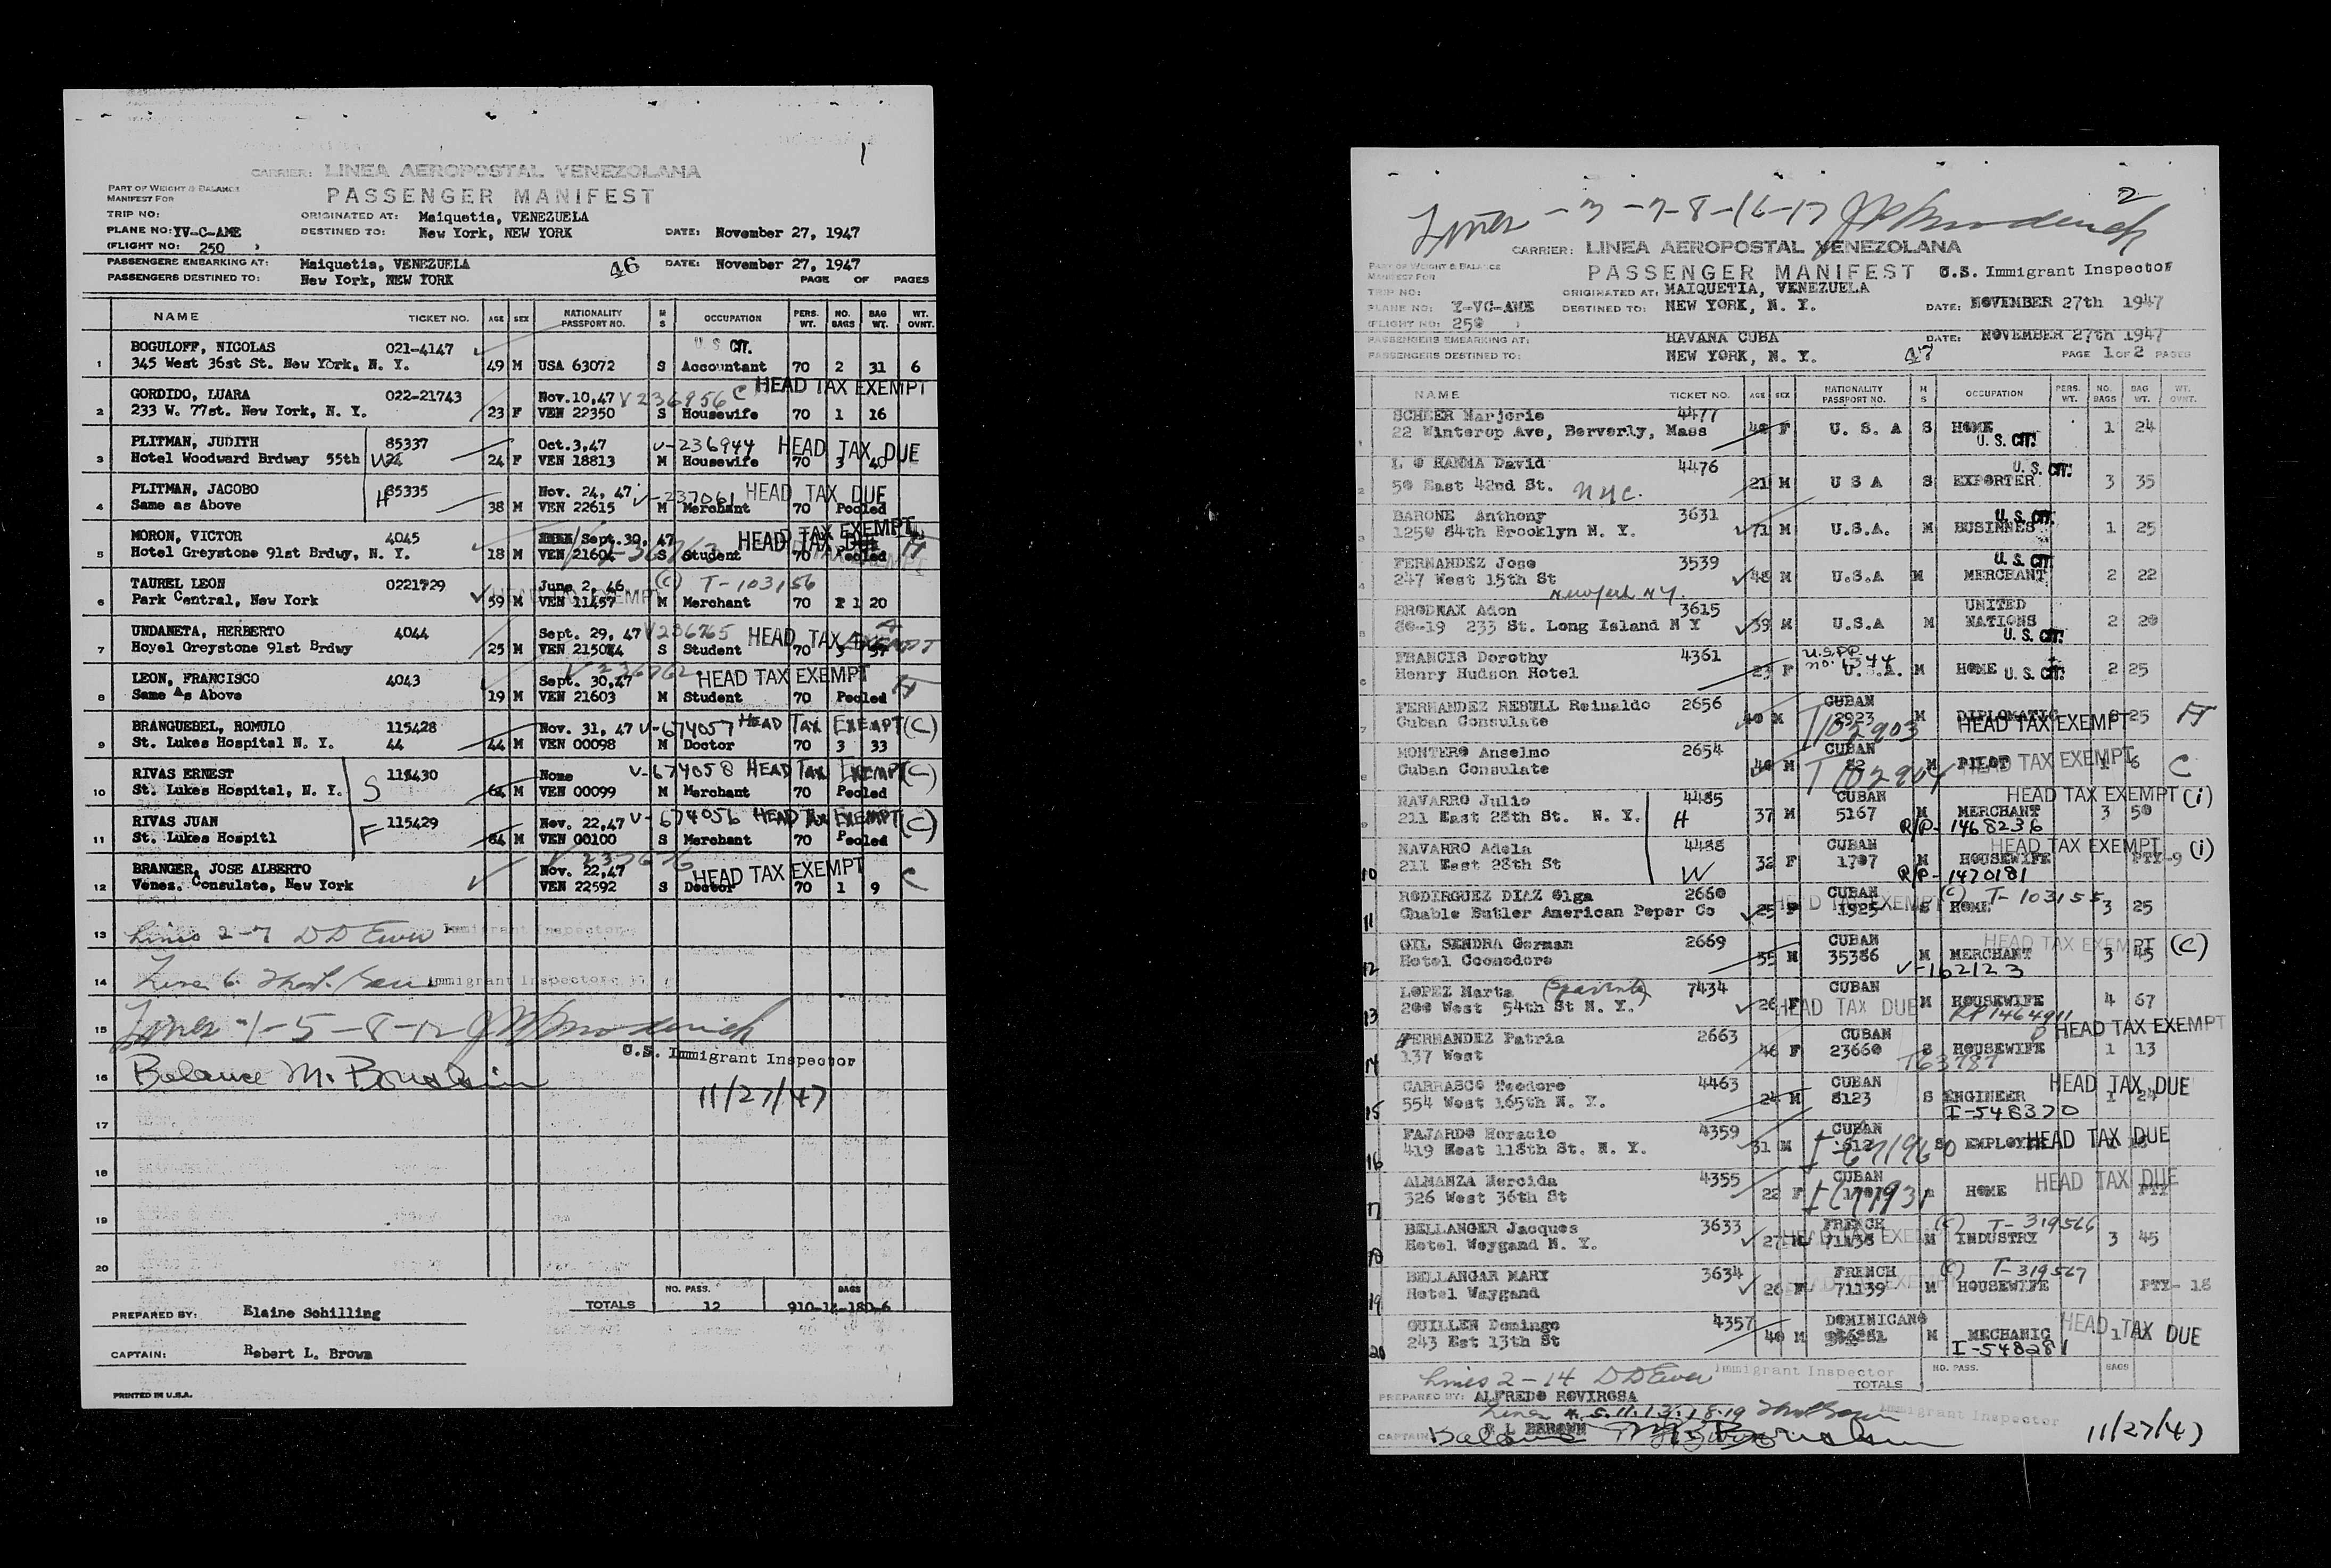 1
CARRIER: LINEA AEROPOSTAL VENEZOLANA
PART OF WEIGHT & BALANCE
MANIFEST FOR
PASSENGER MANIFEST
TRIP NO:
ORIGINATED AT: Maiquetia, VENEZUELA
PLANE NO: YV-C-AME DESTINED TO: New York, NEW YORK DATE: November 27, 1947
(FLIGHT NO: 250 )
PASSENGERS EMBARKING AT: Maiquetia, VENEZUELA 46 DATE: November 27, 1947
PASSENGERS DESTINED TO: New York, NEW YORK PAGE OF PAGES
NAME TICKET NO. AGE SEX NATIONALITY PASSPORT NO. M S OCCUPATION PERS. WT. NO. BAGS BAG WT. WT. OVNT.
BOGULOFF, NICOLAS 021-4147 U S CIT.
1 345 West 36st St. New York, N. Y. 49 M USA 63072 S Accountant 70 2 31 6
GORDIDO, LUARA 022-21743 Nov.10,47 V236956 C HEAD TAX EXEMPT
2 233 W. 77st. New York, N. Y. 23 F VEN 22350 S Housewife 70 1 16
PLITMAN, JUDITH 85337 Oct.3,47 V-236944 HEAD TAX DUE
3 Hotel Woodward Brdway 55th W 24 F VEN 18813 M Housewife 70 3 40
PLITMAN, JACOBO H 85335 Nov. 24, 47 V-237061 HEAD TAX DUE
4 Same as Above 38 M VEN 22615 M Merchant 70 Pooled
MORON, VICTOR 4045 Sept.30, 47 HEAD TAX EXEMPT
5 Hotel Greystone 91st Brdwy, N. Y. 18 M VEN 21604 S Student 70 Pooled
TAUREL LEON 0221729 June 2, 46 (C) T-103156
6 Park Central, New York 59 M VEN 11457 M Merchant 70 1 20
UNDANETA, HERBERTO 4044 Sept. 29, 47 V236765 HEAD TAX EXEMPT
7 Hoyel Greystone 91st Brdwy 25 M VEN S Student 70 3
LEON, FRANCISCO 4043 Sept. 30,47 V236762 HEAD TAX EXEMPT
8 Same As Above 19 M VEN 21603 M Student 70 Pooled
BRANGUEBEL, ROMULO 115428 Nov. 31, 47 V-674057 HEAD TAX EXEMPT (C)
9 St. Lukes Hospital N. Y. 44 44 M VEN 00098 M Doctor 70 3 33
RIVAS ERNEST S 115430 None V-674058 HEAD TAX EXEMPT (C)
10 St. Lukes Hospital, N. Y. 64 M VEN 00099 M Merchant 70 Pooled
RIVAS JUAN F 115429 Nov. 22,47 V-674056 HEAD TAX EXEMPT (C)
11 St. Lukes Hospitl 64 M VEN 00100 S Merchant 70 Pooled
BRANGER, JOSE ALBERTO Nov. 22,47 V 237676 HEAD TAX EXEMPT C
12 Venez. Consulate, New York VEN 22592 S Doctor 70 1 9
13 Lines 2-7 D D Ewer Immigrant Inspector
14 Line 6. Immigrant Inspector
15 Lines 1-5-8-12
U.S. Immigrant Inspector
16
11/27/47
17
18
19
20
NO. PASS. BAGS
TOTALS 12 910-14-180-6
PREPARED BY: Elaine Schilling
CAPTAIN: Robert L. Brown
PRINTED IN U.S.A.
2
Lines -3-7-8-16-17
CARRIER: LINEA AEROPOSTAL VENEZOLANA
PART OF WEIGHT & BALANCE
MANIFEST FOR
PASSENGER MANIFEST U.S. Immigrant Inspector
TRIP NO: ORIGINATED AT: MAIQUETIA, VENEZUELA
PLANE NO: Y-VC-AME DESTINED TO: NEW YORK, N. Y. DATE: NOVEMBER 27th 1947
(FLIGHT NO: 250 )
PASSENGERS EMBARKING AT: HAVANA CUBA DATE: NOVEMBER 27th 1947
PASSENGERS DESTINED TO: NEW YORK, N. Y. 47 PAGE 1 OF 2 PAGES
NAME TICKET NO. AGE SEX NATIONALITY PASSPORT NO. M S OCCUPATION PERS. WT. NO. BAGS BAG WT. WT. OVNT.
SCHEER Marjorie 4477
1 22 Winterop Ave, Berverly, Mass F U. S. A S HOME U. S. CIT. 1 24
L @ HANNA David 4476 U. S. CIT.
2 50 East 42nd St. N.Y.C. 21 M U S A S EXPORTER 3 35
BARONE Anthony 3631 U. S. CIT.
3 1250 84th Brooklyn N. Y. 71 M U.S.A. M BUSINNES 1 25
FERNANDEZ Jose 3539 U. S. CIT.
4 247 West 15th St New York N.Y. 48 M U.S.A M MERCHANT 2 22
BRODNAX Adon 3615 UNITED
5 80-19 233 St. Long Island N Y 39 M U.S.A M NATIONS U. S. CIT. 2 20
FRANCIS Dorothy 4361 U.S.P.P. no. 1344
6 Henry Hudson Hotel 23 F U.S.A. M HOME U. S. CIT. 2 25
FERNANDEZ REBULL Reinaldo 2656 CUBAN
7 Cuban Consulate 40 M 2923 T102903 M DIPLOMATIC HEAD TAX EXEMPT 25
MONTERO Anselmo 2654 CUBAN
8 Cuban Consulate 40 M 82 T102904 M PILOT HEAD TAX EXEMPT 1 6 C
NAVARRO Julio 4485 CUBAN HEAD TAX EXEMPT (i)
9 211 East 28th St. N. Y. H 37 M 5167 M MERCHANT 3 50
R/P-1468236
NAVARRO Adela 4488 CUBAN HEAD TAX EXEMPT (i)
10 211 East 28th St W 32 F 1707 M HOUSEWIFE PTY-9
R/P-1470181
RODIRGUEZ DIAZ Olga 2660 CUBAN (C) T-103155
11 Chable Butler American Peper Co 25 F 1925 HEAD TAX EXEMPT S HOME 3 25
GIL SENDRA German 2669 CUBAN HEAD TAX EXEMPT (C)
12 Hotel Coonodore 35 M 35386 M MERCHANT 3 45
V-162123
LOPEZ Marta 7434 CUBAN
13 200 West 54th St N. Y. 26 F HEAD TAX DUE M HOUSEWIFE 4 67
RP1464911
FERNANDEZ Patria 2663 CUBAN HEAD TAX EXEMPT
14 137 West 46 F 23660 S HOUSEWIFE 1 13
T63787
CARRASCO Teodoro 4463 CUBAN HEAD TAX DUE
15 554 West 165th N. Y. 24 M 8123 S ENGINEER 1 24
I-548370
FAJARDO Horacio 4359 CUBAN
16 419 East 118th St. N. Y. 31 M S HEAD TAX DUE
ALMANZA Mercida 4355 CUBAN
17 326 West 36th St 22 F HOME HEAD TAX DUE
BELLANGER Jacques 3633 FRENCH (C) T-319566
18 Hotel Weygand N. Y. 27 M 71138 M INDUSTRY 3 45
BELLANGAR MARY 3634 FRENCH (C) T-319567
19 Hotel Waygand 26 F 71139 M HOUSEWIFE PTY- 18
GUILLEN Domingo 4357 DOMINICANO HEAD TAX DUE
20 243 Est 13th St 40 M M MECHANIC 1
I-548281
Lines 2-14 D D Ewer Immigrant Inspector NO. PASS. BAGS
TOTALS
PREPARED BY: ALFREDO ROVIROSA
Immigrant Inspector
CAPTAIN: R L BROWN 11/27/47